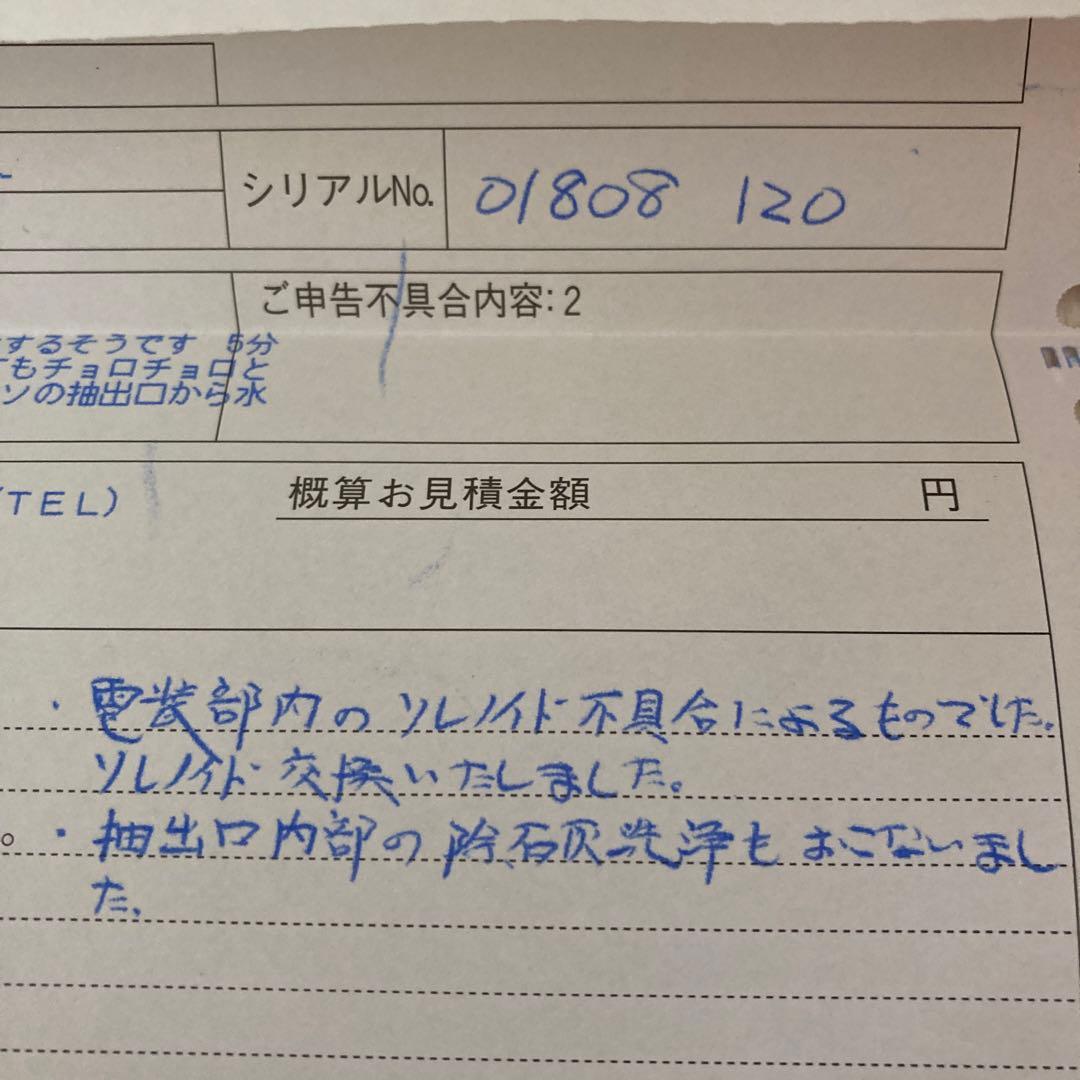 シリアルNo. 01808 120
ご申告不具合内容:2
するそうです 5分
もチョロチョロと
ソの抽出口から水
TEL)
概算お見積金額 円
・電装部内のソレノイド不具合によるものでした。
ソレノイド交換いたしました。
。・抽出口内部の除石灰洗浄もおこないまし
た。